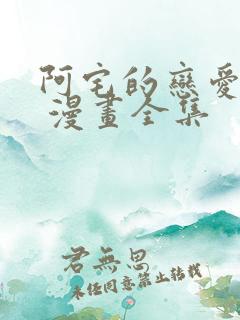 阿宅的戀愛
漫畫全集
君無思
未经同意禁止转载